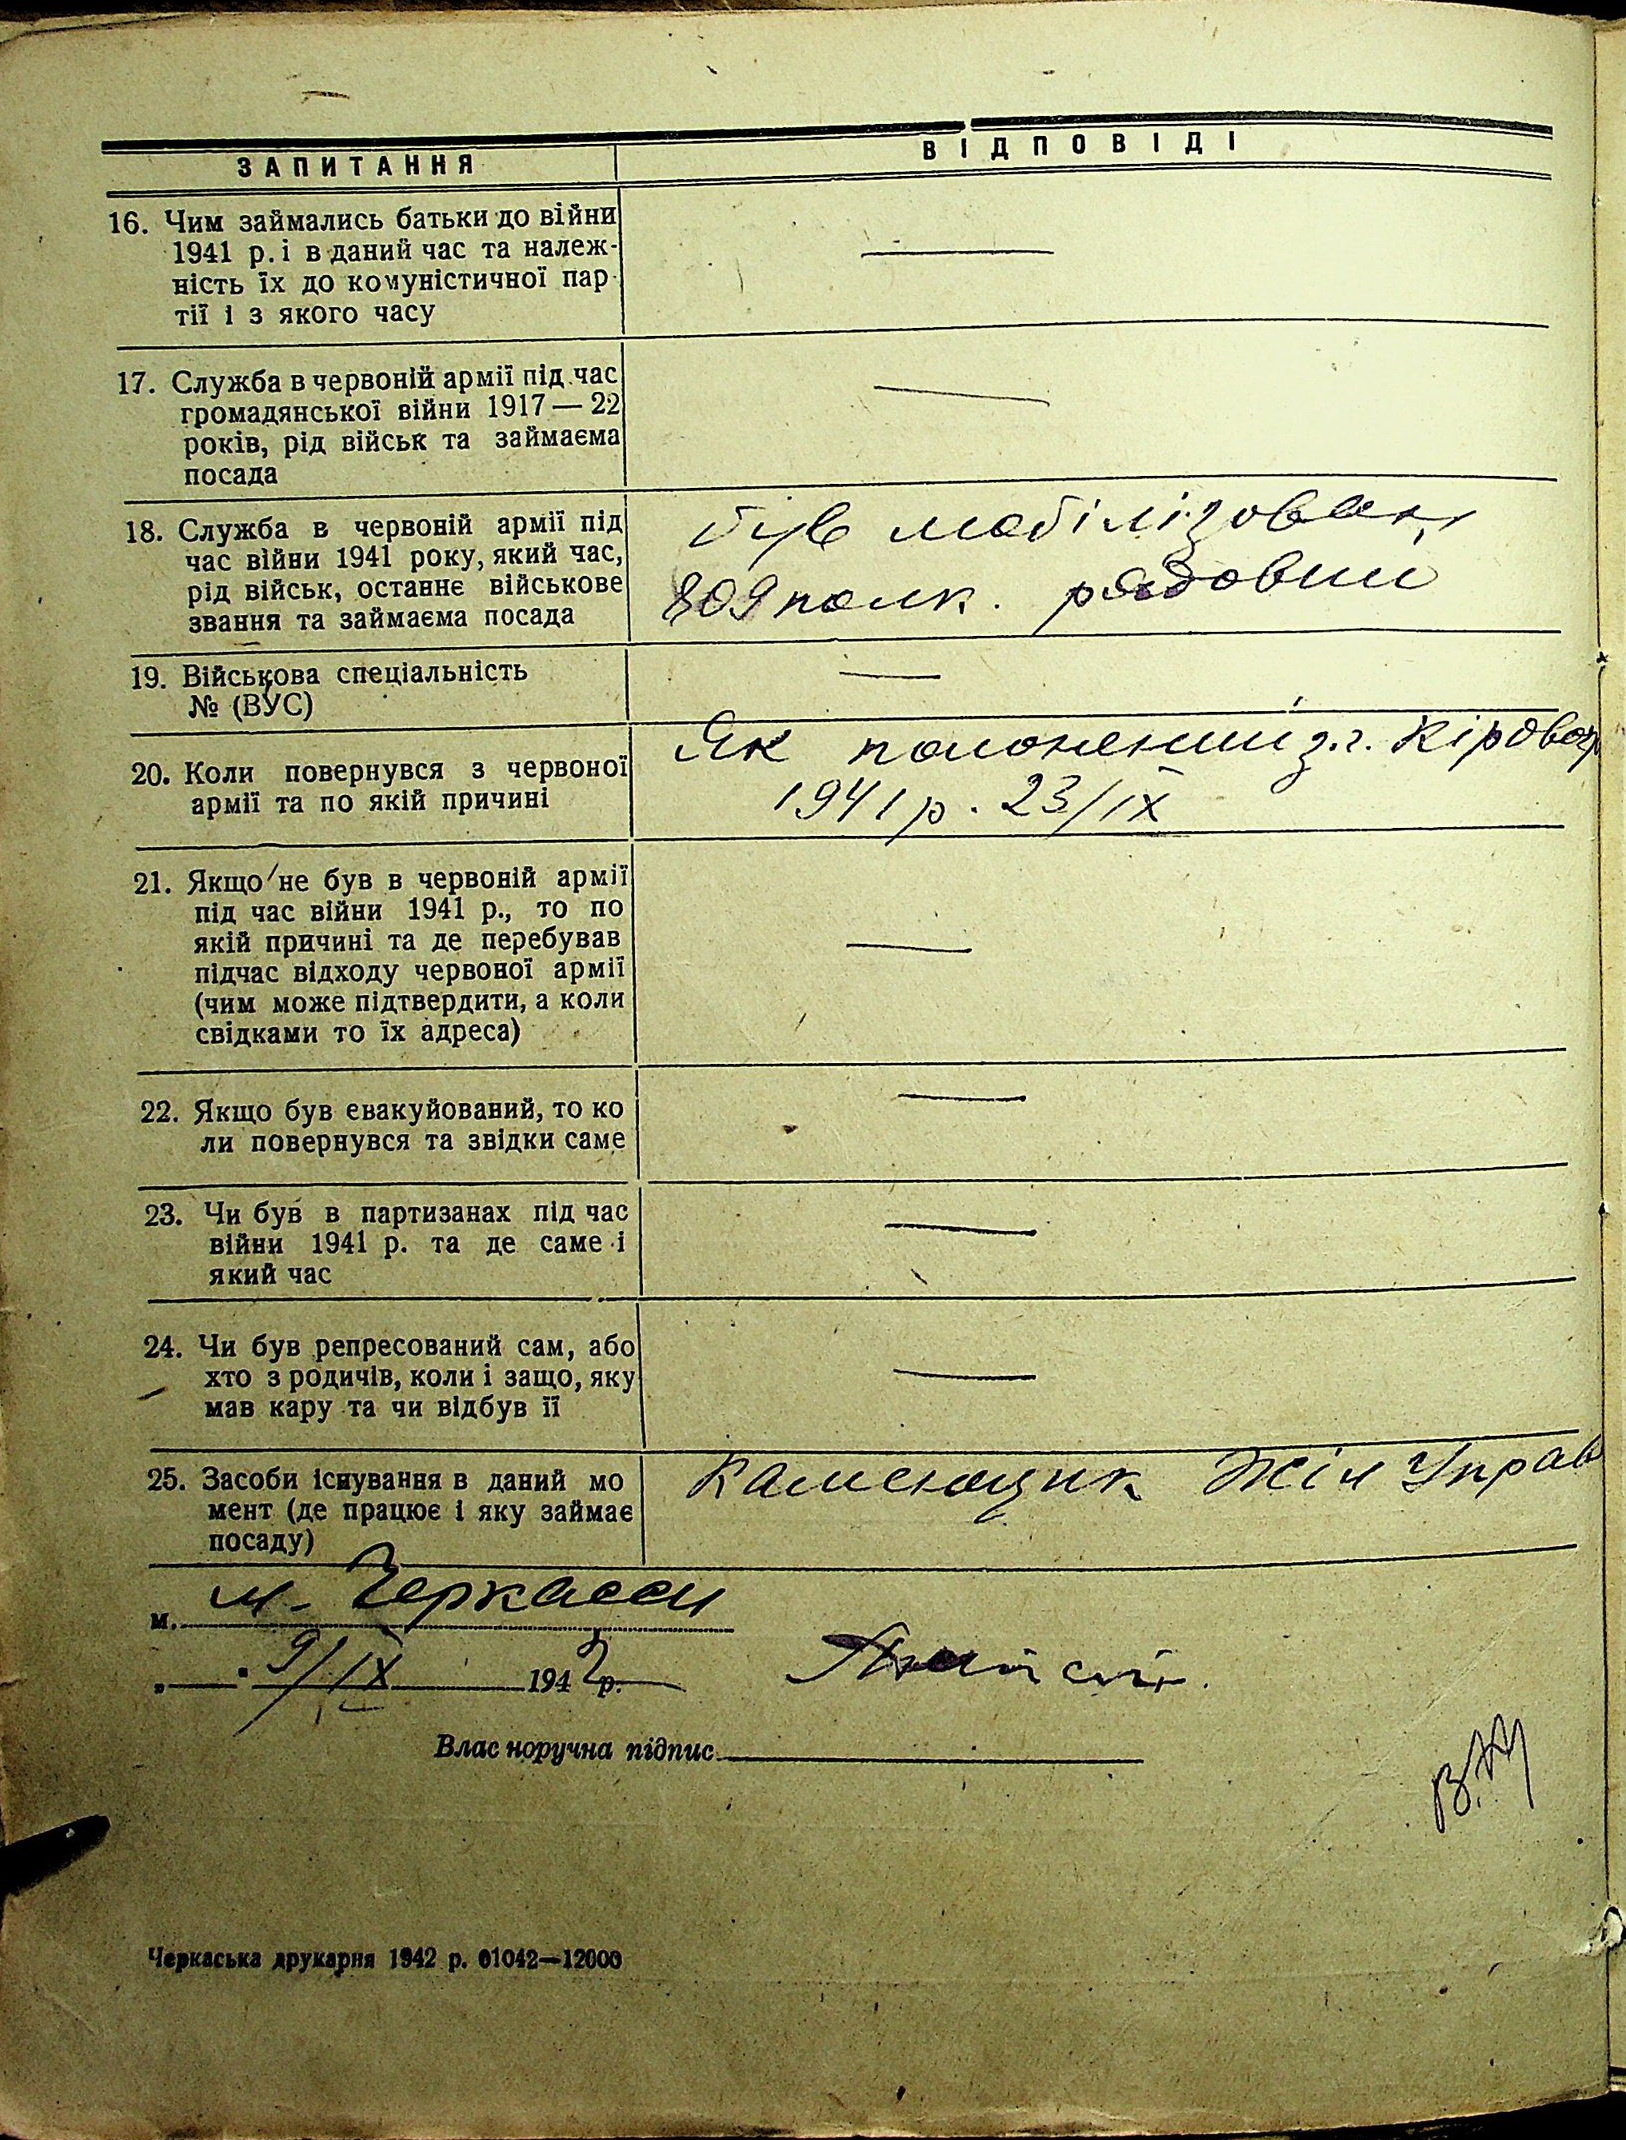 ЗАПИТАННЯ
ВІДПОВІДІ
16. Чим займались батьки до війни
1941 р. і в даний час та належ-
ність їх до комуністичної пар-
тії і з якого часу
17. Служба в червоній армії під час
громадянської війни 1917—22
років, рід військ та займаєма
посада
18. Служба в червоній армії під
час війни 1941 року, який час,
рід військ, останнє військове
звання та займаєма посада
був мобілізован
809 полк. рядовий
19. Військова спеціальність
№ (ВУС)
20. Коли повернувся з червоної
армії та по якій причині
Як полонений з.г. Кіровогр
1941 р. 23/IX
21. Якщо не був в червоній армії
під час війни 1941 р., то по
якій причині та де перебував
підчас відходу червоної армії
(чим може підтвердити, а коли
свідками то їх адреса)
22. Якщо був евакуйований, то ко
ли повернувся та звідки саме
23. Чи був в партизанах під час
війни 1941 р. та де саме і
який час
24. Чи був репресований сам, або
хто з родичів, коли і защо, яку
мав кару та чи відбув її
25. Засоби існування в даний мо
мент (де працює і яку займає
посаду)
Каменщик Жіл Управ
м. м. Черкасси
„ 9/IX 1942 р.
Влас норучна підпис
Черкаська друкарня 1942 р. 01042—12000